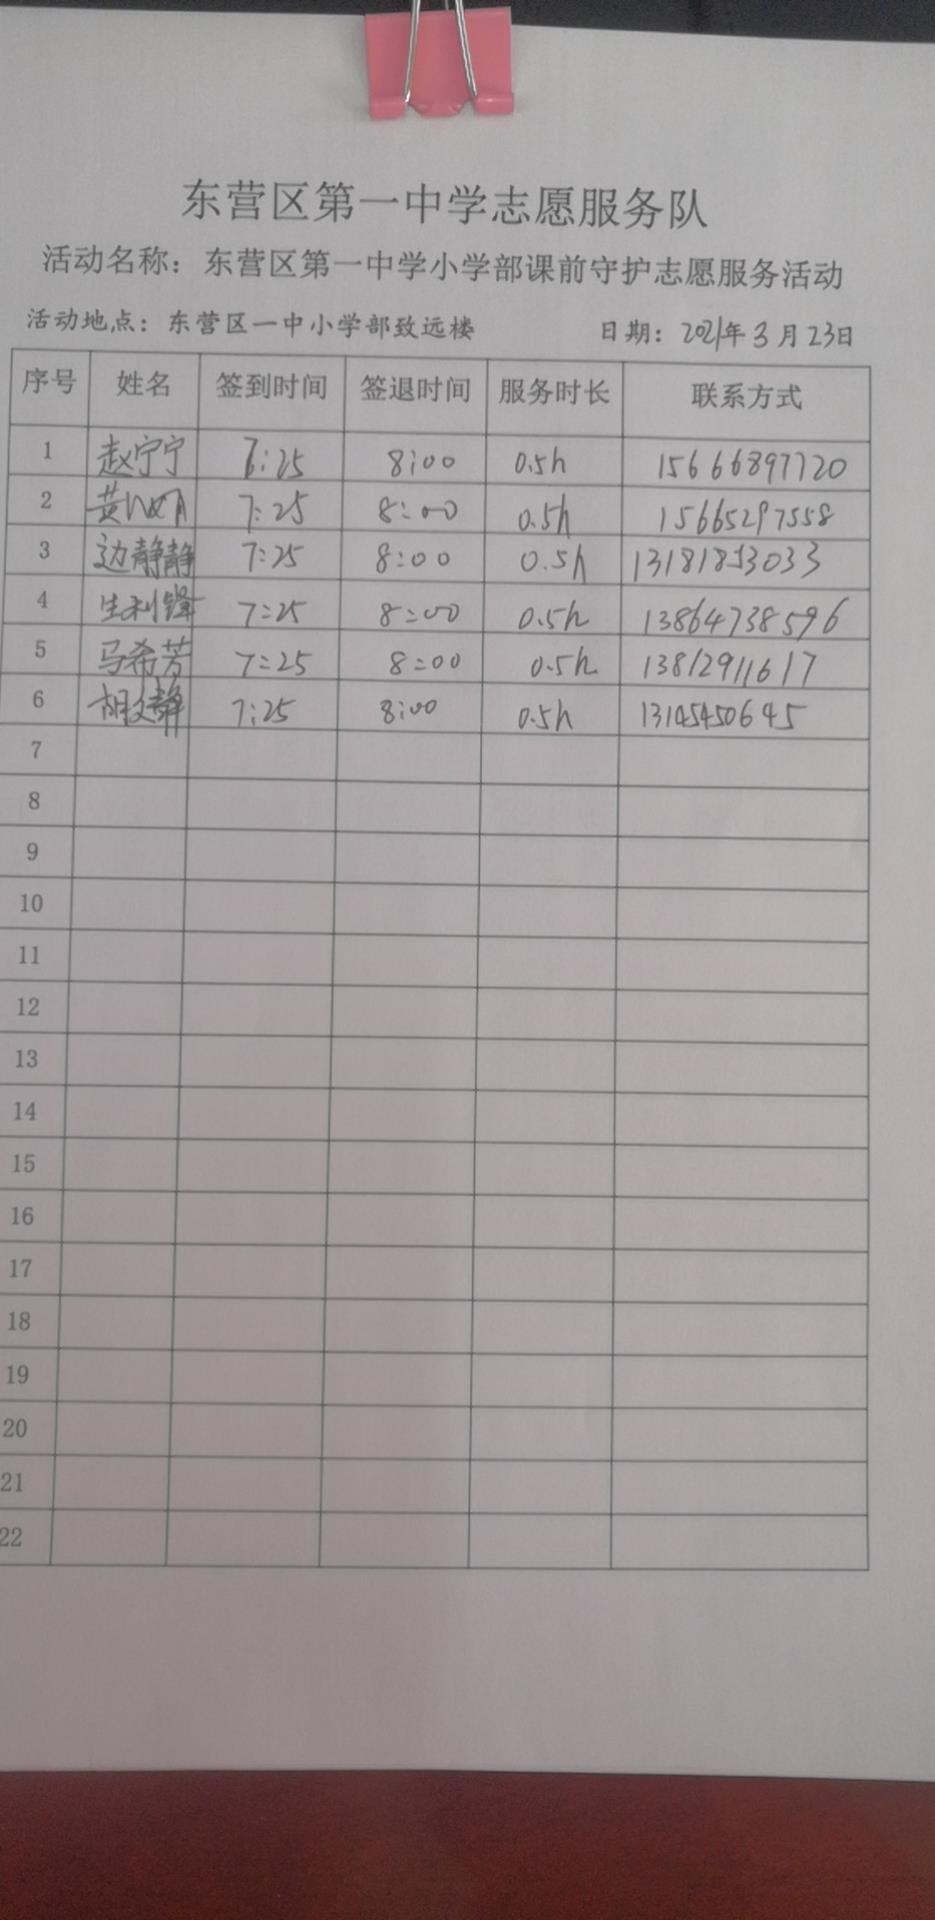 东营区第一中学志愿服务队
活动名称：东营区第一中学小学部课前守护志愿服务活动
活动地点：东营区一中小学部致远楼 日期：2021年3月23日
序号 姓名 签到时间 签退时间 服务时长 联系方式
1 赵宁宁 7:25 8:00 0.5h 15666897720
2 黄 7:25 8:00 0.5h 15665297558
3 边静静 7:25 8:00 0.5h 13181853033
4 生利锋 7:25 8:00 0.5h 13864738596
5 马希芳 7:25 8:00 0.5h 13812911617
6 胡文静 7:25 8:00 0.5h 13145450645
7
8
9
10
11
12
13
14
15
16
17
18
19
20
21
22